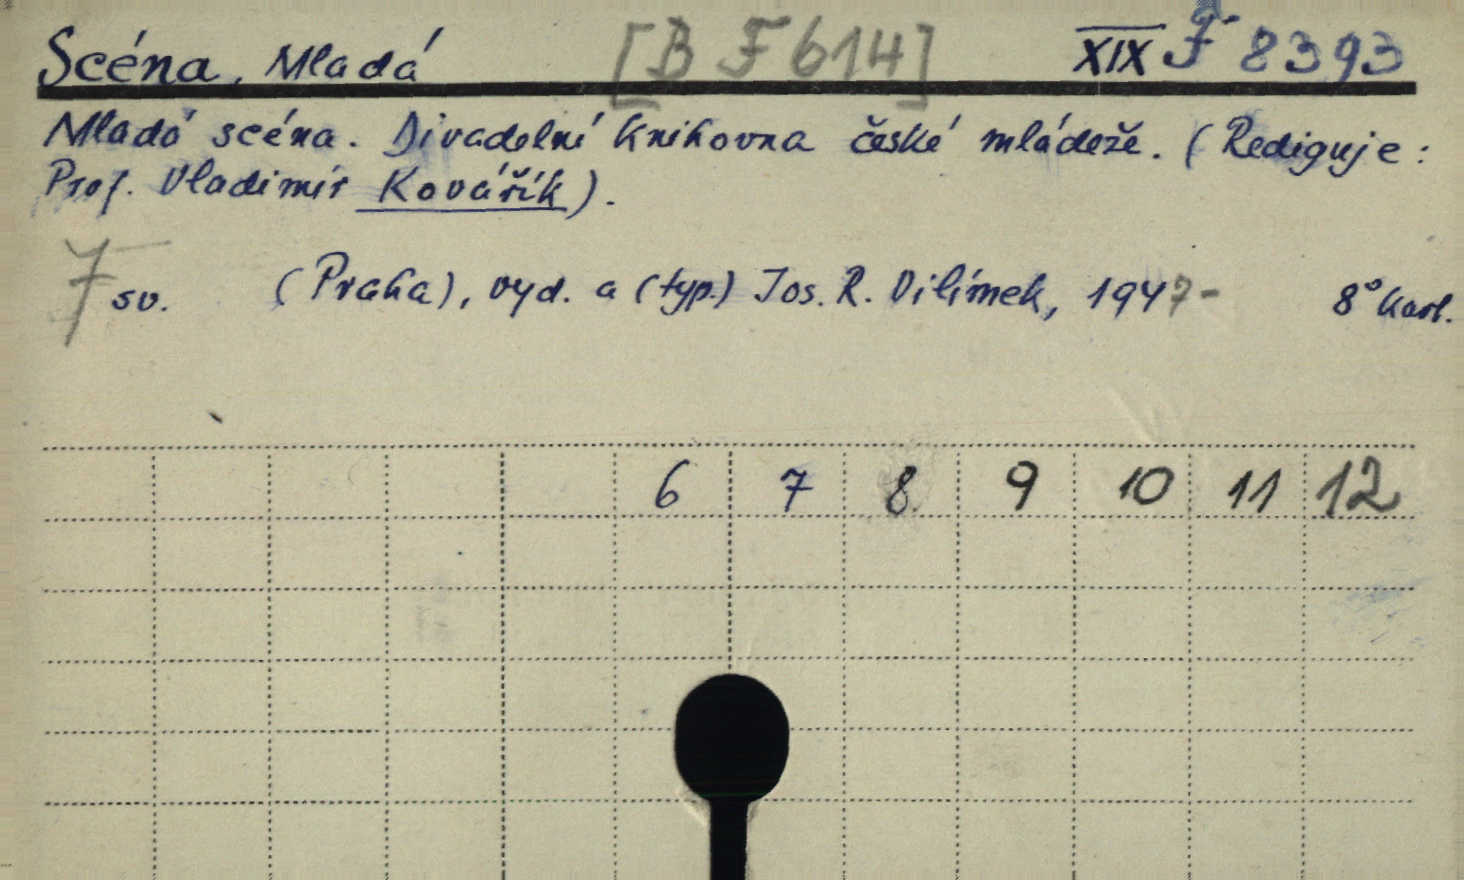 Scéna, Mladá [B F 614] XIX F 8393
Mladá scéna. Divadelní knihovna české mládeže. (Rediguje:
Prof. Vladimír Kovářík).
7 sv. (Praha), vyd. a (typ.) Jos. R. Vilímek, 1947- 8° kart.
6 7 8 9 10 11 12